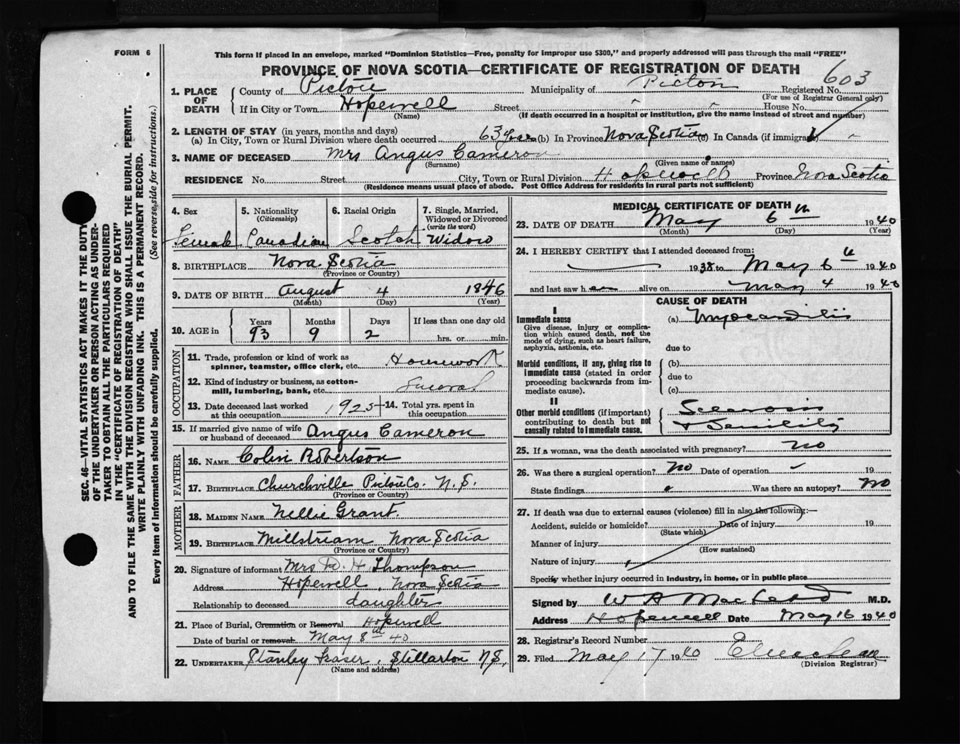 FORM 6
This form if placed in an envelope, marked "Dominion Statistics—Free, penalty for improper use $300," and properly addressed will pass through the mail "FREE"
PROVINCE OF NOVA SCOTIA—CERTIFICATE OF REGISTRATION OF DEATH
603
1. PLACE OF DEATH
County of Pictou Municipality of Pictou Registered No.
(For use of Registrar General only)
If in City or Town Hopewell Street House No.
(Name) (If death occurred in a hospital or institution, give the name instead of street and number)
2. LENGTH OF STAY (in years, months and days)
(a) In City, Town or Rural Division where death occurred 63 yrs (b) In Province Nova Scotia (c) In Canada (if immigrant)
3. NAME OF DECEASED Mrs Angus Cameron
(Surname) (Given name or names)
RESIDENCE No. Street City, Town or Rural Division Hopewell Province Nova Scotia
(Residence means usual place of abode. Post Office Address for residents in rural parts not sufficient)
4. Sex 5. Nationality (Citizenship) 6. Racial Origin 7. Single, Married, Widowed or Divorced (write the word)
Female Canadian Scotch Widow
8. BIRTHPLACE Nova Scotia
(Province or Country)
9. DATE OF BIRTH August 4 1846
(Month) (Day) (Year)
10. AGE in Years Months Days If less than one day old
93 9 2 hrs. or min.
OCCUPATION
11. Trade, profession or kind of work as spinner, teamster, office clerk, etc. Housework
12. Kind of industry or business, as cotton-mill, lumbering, bank, etc.
13. Date deceased last worked at this occupation 1925 14. Total yrs. spent in this occupation
15. If married give name of wife or husband of deceased Angus Cameron
FATHER
16. NAME Colin Robertson
17. BIRTHPLACE Churchville Pictou Co. N.S.
(Province or Country)
MOTHER
18. MAIDEN NAME Nellie Grant.
19. BIRTHPLACE Millstream Nova Scotia
(Province or Country)
20. Signature of informant Mrs D. H Thompson
Address Hopewell, Nova Scotia
Relationship to deceased daughter
21. Place of Burial, Cremation or Removal Hopewell
Date of burial or removal May 8th 40
22. UNDERTAKER Stanley Fraser, Stellarton N.S.
(Name and address)
MEDICAL CERTIFICATE OF DEATH
23. DATE OF DEATH May 6th 1940
(Month) (Day) (Year)
24. I HEREBY CERTIFY that I attended deceased from:
1938 to May 6 1940
and last saw her alive on May 4 1940
CAUSE OF DEATH
I
Immediate cause (a) Myocarditis
Give disease, injury or complication which caused death, not the mode of dying, such as heart failure, asphyxia, asthenia, etc.
due to
Morbid conditions, if any, giving rise to immediate cause (stated in order proceeding backwards from immediate cause).
(b)
due to
(c)
II
Other morbid conditions (if important) contributing to death but not causally related to immediate cause.
& Senility
25. If a woman, was the death associated with pregnancy? no
26. Was there a surgical operation? no Date of operation 19
State findings Was there an autopsy? No
27. If death was due to external causes (violence) fill in also the following:—
Accident, suicide or homicide? Date of injury 19
(State which)
Manner of injury
(How sustained)
Nature of injury
Specify whether injury occurred in industry, in home, or in public place
Signed by W A MacLeod M.D.
Address Hopewell Date May 16 1940
28. Registrar's Record Number
29. Filed May 17 1940
(Division Registrar)
SEC. 46—VITAL STATISTICS ACT MAKES IT THE DUTY
OF THE UNDERTAKER OR PERSON ACTING AS UNDER-
TAKER TO OBTAIN ALL THE PARTICULARS REQUIRED
IN THE "CERTIFICATE OF REGISTRATION OF DEATH"
AND TO FILE THE SAME WITH THE DIVISION REGISTRAR WHO SHALL ISSUE THE BURIAL PERMIT.
WRITE PLAINLY WITH UNFADING INK. THIS IS A PERMANENT RECORD.
Every item of information should be carefully supplied. (See reverse side for instructions.)